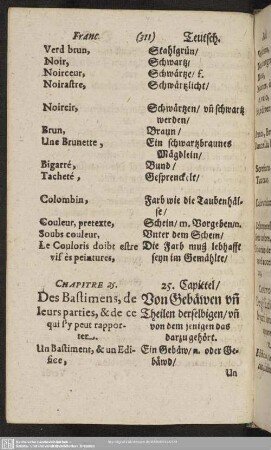 Franc. (311) Teutsch.
Verd brun, Stahlgrün/
Noir, Schwartz/
Noirceur, Schwärtze/ f.
Noirastre, Schwärtzlicht/
Noircir, Schwärtzen/ vñ schwartz
werden/
Brun, Braun/
Une Brunette, Ein schwartzbraunes
Mägdlein/
Bigarré, Bund/
Tacheté, Gesprenckelt/
Colombin, Farb wie die Taubenhäl-
se/
Couleur, pretexte, Schein/ m. Vorgeben/n.
Soubs couleur, Unter dem Schein/
Le Couloris doibt estre Die Farb muß lebhafft
vif és peintures, seyn im Gemählte/
CHAPITRE 25. 25. Capittel/
Des Bastimens, de Von Gebäwen vñ
leurs parties, & de ce Theilen derselbigen/ vñ
qui s'y peut rappor- von dem jenigen das
ter. darzu gehört.
Un Bastiment, & un Edi- Ein Gebäw/ n. oder Ge-
fice, bäwd/
Un